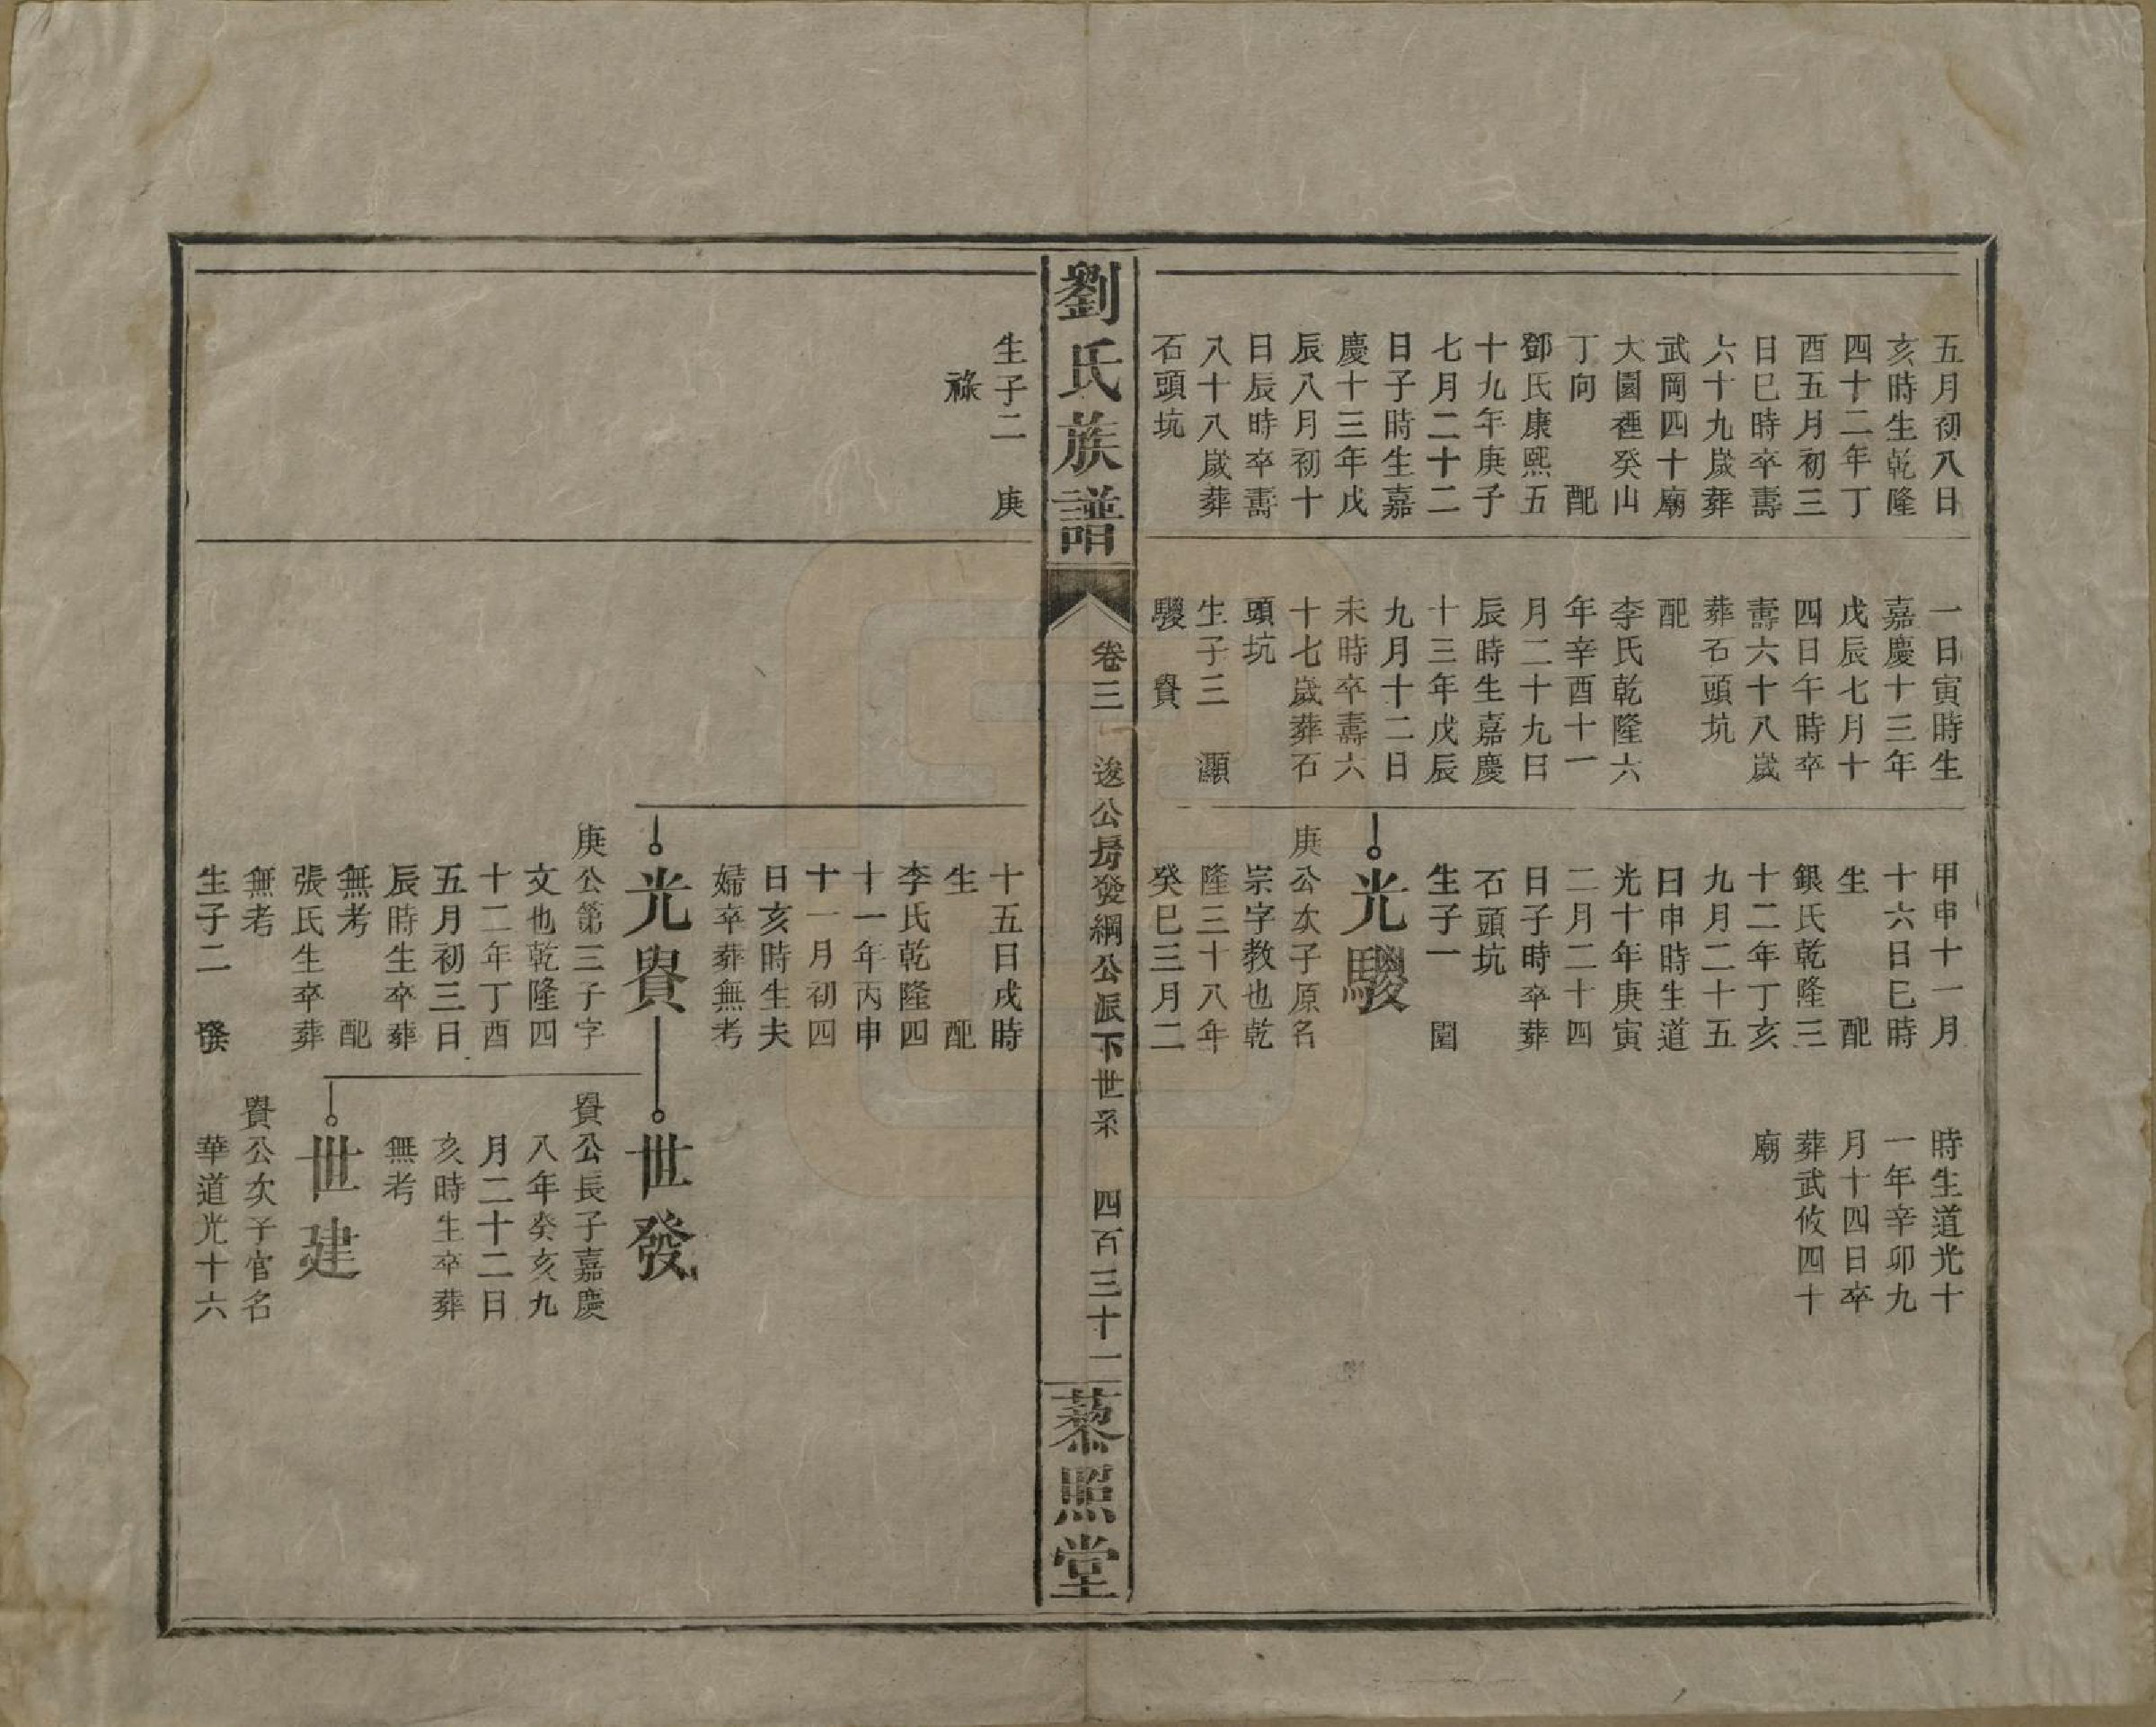 五月初八日
亥時生乾隆
四十二年丁
酉五月初三
日巳時卒壽
六十九歲葬
武岡四十廟
大園裡癸山
丁向　　配
鄧氏康熙五
十九年庚子
七月二十二
日子時生嘉
慶十三年戊
辰八月初十
日辰時卒壽
八十八歲葬
石頭坑
一日寅時生
嘉慶十三年
戊辰七月十
四日午時卒
壽六十八歲
葬石頭坑
配
李氏乾隆六
年辛酉十一
月二十九日
辰時生嘉慶
十三年戊辰
九月十二日
未時卒壽六
十七歲葬石
頭坑
生子三　灝
騣　貴
甲申十一月
十六日巳時
生　　　配
銀氏乾隆三
十二年丁亥
九月二十五
日申時生道
光十年庚寅
二月二十四
日子時卒葬
石頭坑
生子一　圍
光騣
庚公次子原名
宗字教也乾
隆三十八年
癸巳三月二
時生道光十
一年辛卯九
月十四日卒
葬武攸四十
廟
劉氏族譜
卷三　逡公房發綱公派下世系　四百三十一
藜照堂
生子二　庚
祿
十五日戌時
生　　　配
李氏乾隆四
十一年丙申
十一月初四
日亥時生夫
婦卒葬無考
光貴
庚公第三子字
文也乾隆四
十二年丁酉
五月初三日
辰時生卒葬
無考　　配
張氏生卒葬
無考
生子二　發
世發
貴公長子嘉慶
八年癸亥九
月二十二日
亥時生卒葬
無考
世建
貴公次子官名
華道光十六